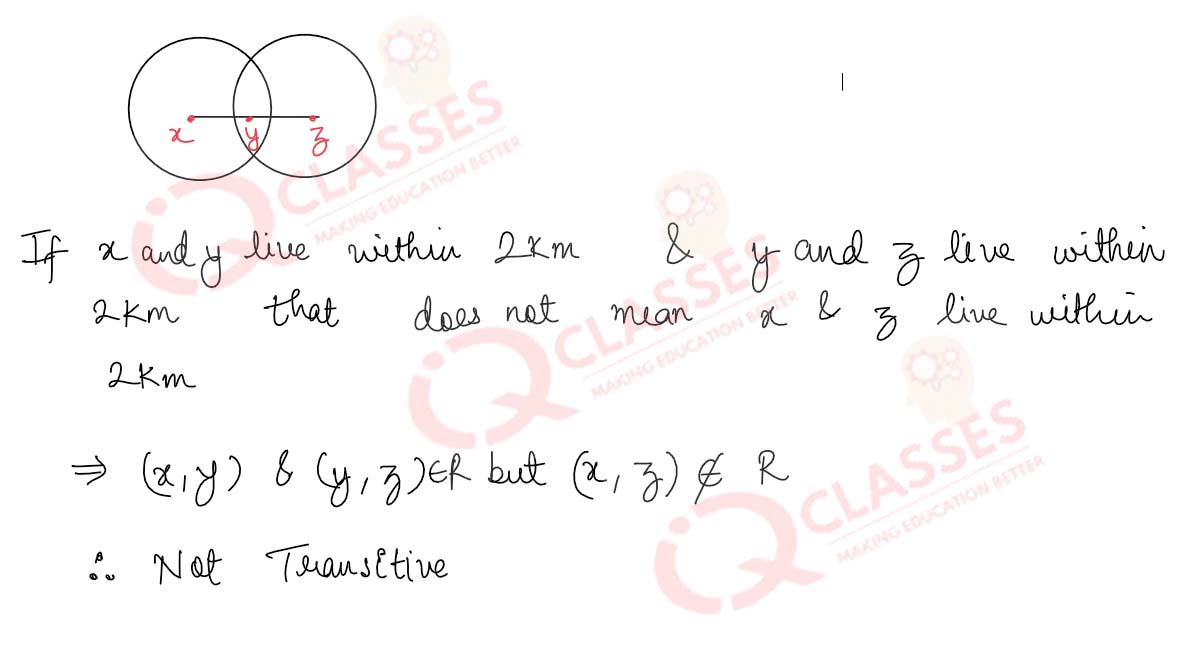 x y z
If x and y live within 2km & y and z live within
2km that does not mean x & z live within
2km
⇒ (x, y) & (y, z) ∈ R but (x, z) ∉ R
∴ Not Transitive
iQ CLASSES
MAKING EDUCATION BETTER
iQ CLASSES
MAKING EDUCATION BETTER
iQ CLASSES
MAKING EDUCATION BETTER